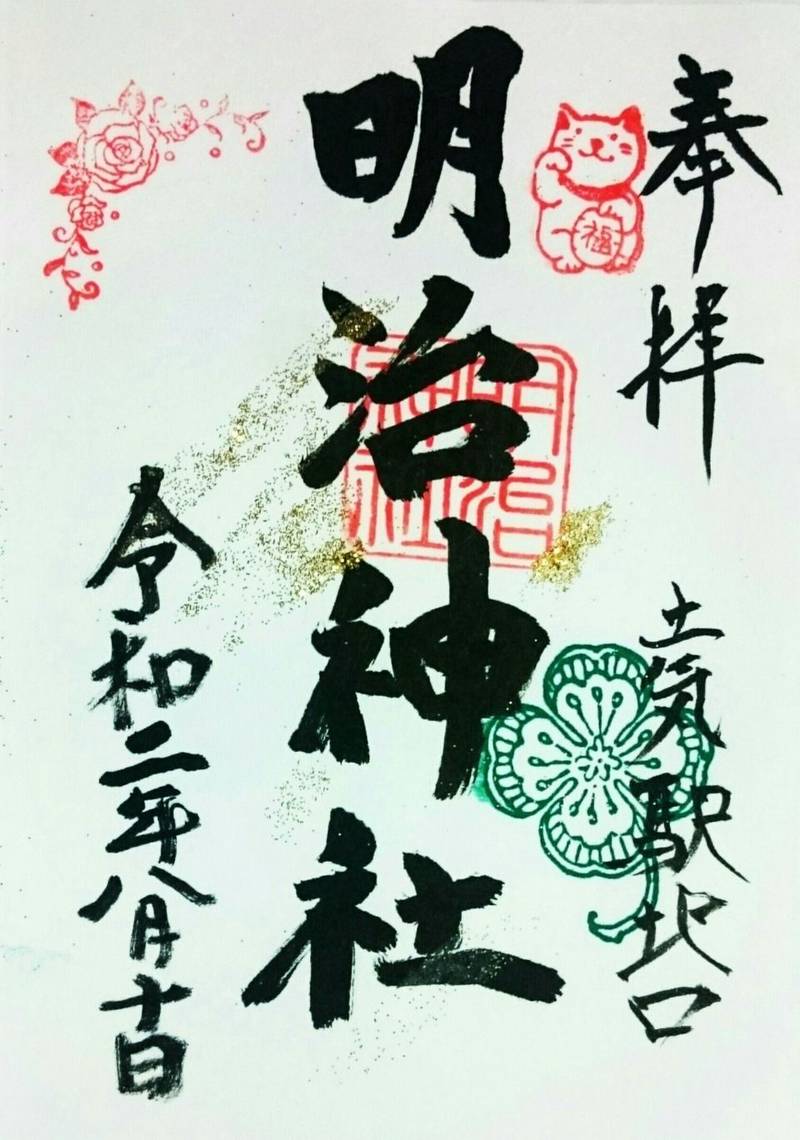 奉拝
土気駅北口
福
明治神社
明治
神社
令和二年八月十日